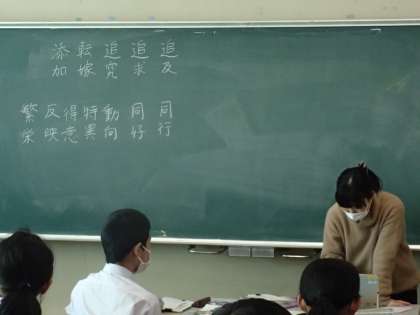 追及
追求
追究
転嫁
添加
同行
同好
動向
特異
得意
反映
繁栄